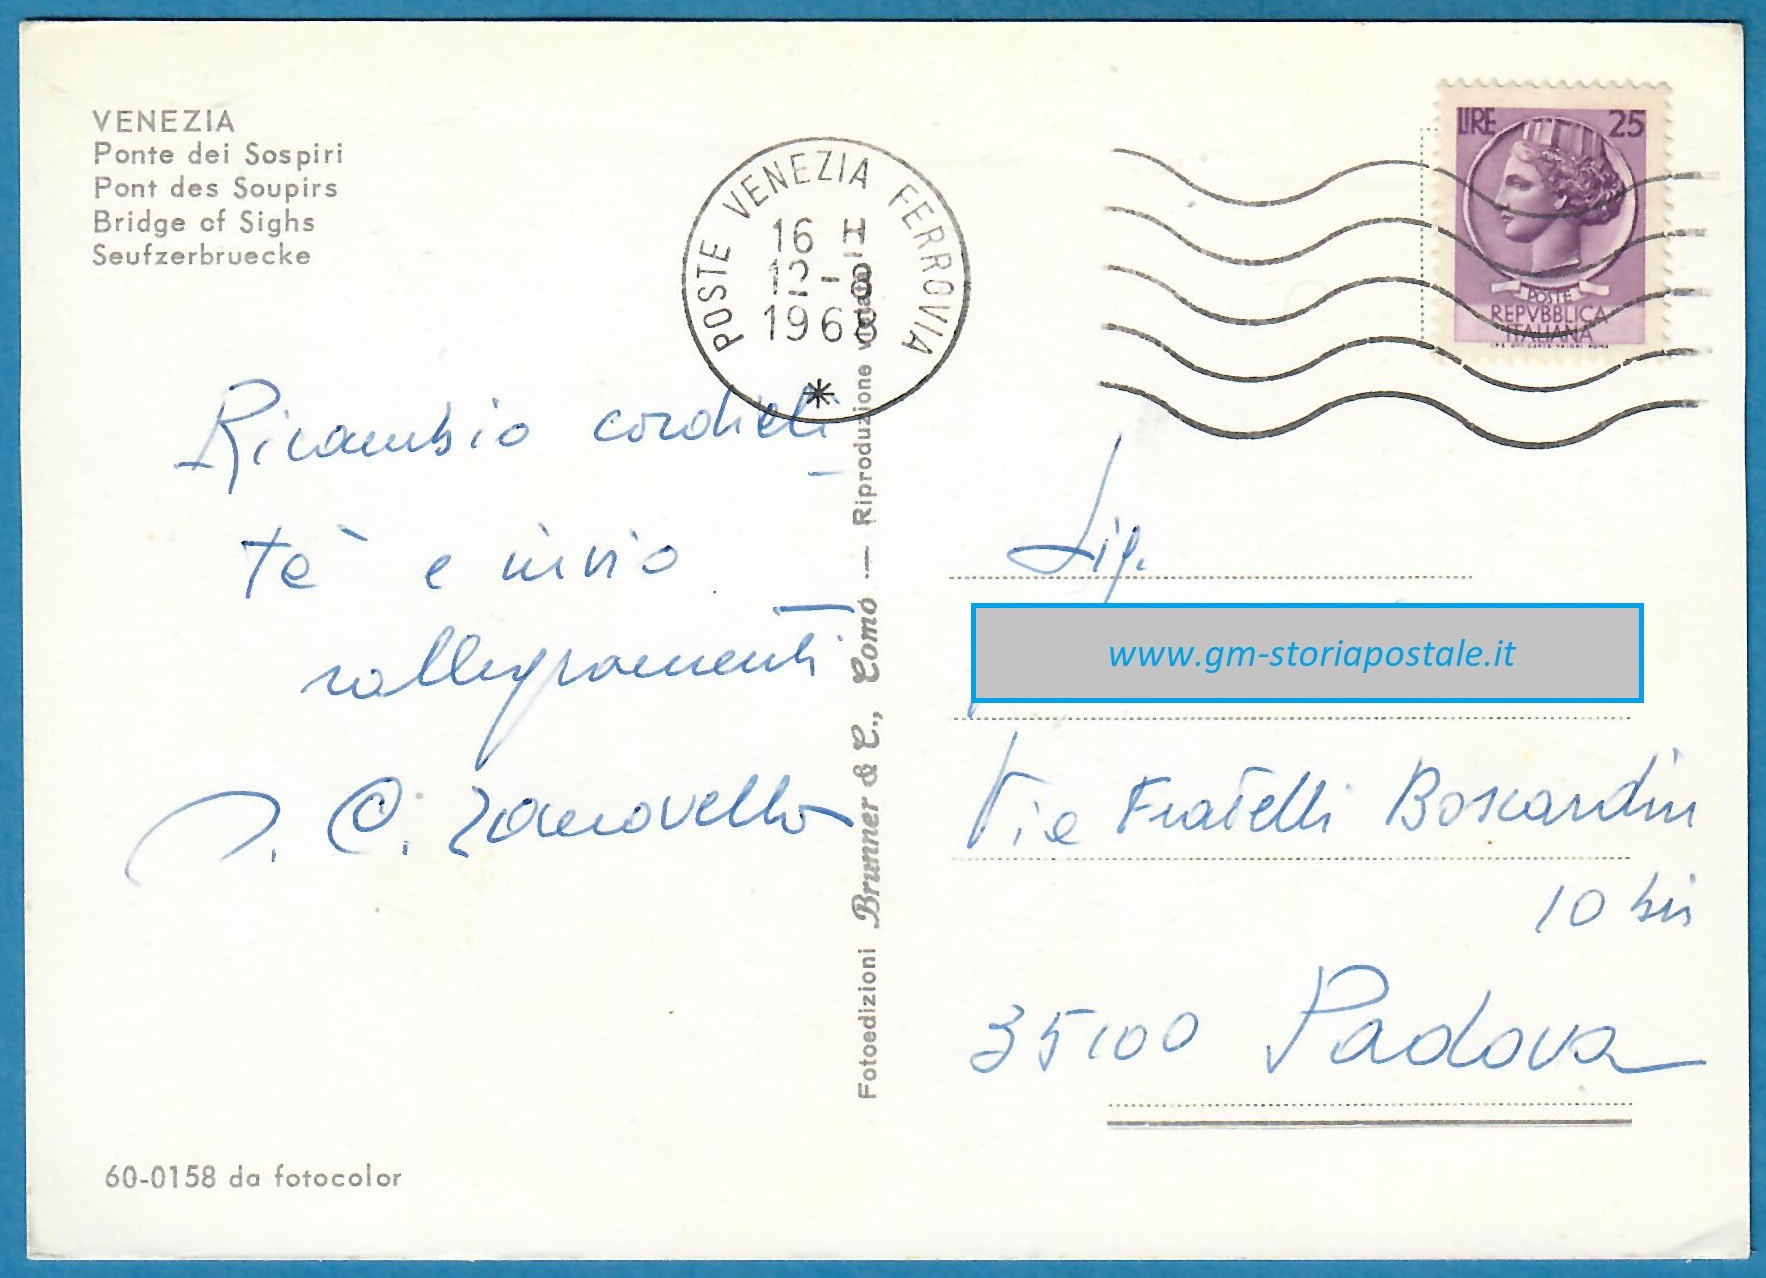 VENEZIA
Ponte dei Sospiri
Pont des Soupirs
Bridge of Sighs
Seufzerbruecke
POSTE VENEZIA FERROVIA
16 H
12-8
1968
LIRE 25
POSTE
REPVBBLICA
ITALIANA
Ricambio cordiali
tà e invio
rallegramenti
C. Zanovello
Fotoedizioni Brunner & C., Como — Riproduzione vietata
Sig.
www.gm-storiapostale.it
Via Fratelli Boscardin
10 bis
35100 Padova
60-0158 da fotocolor